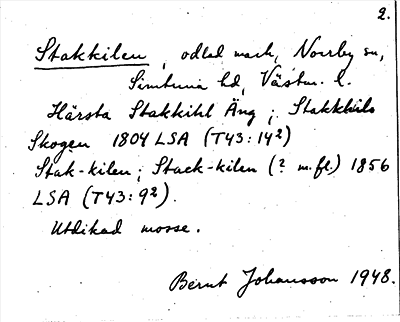 2.
Stakkilen, odlad mark, Norrby sn,
Simtuna hd, Västm. l.
Härsta Stakkihl Äng; Stakkkils
Skogen 1804 LSA (T43:14²)
Stak-kilen; Stack-kilen (? m.fl.) 1856
LSA (T43:9²).
Utdikad mosse.
Bernt Johansson 1948.